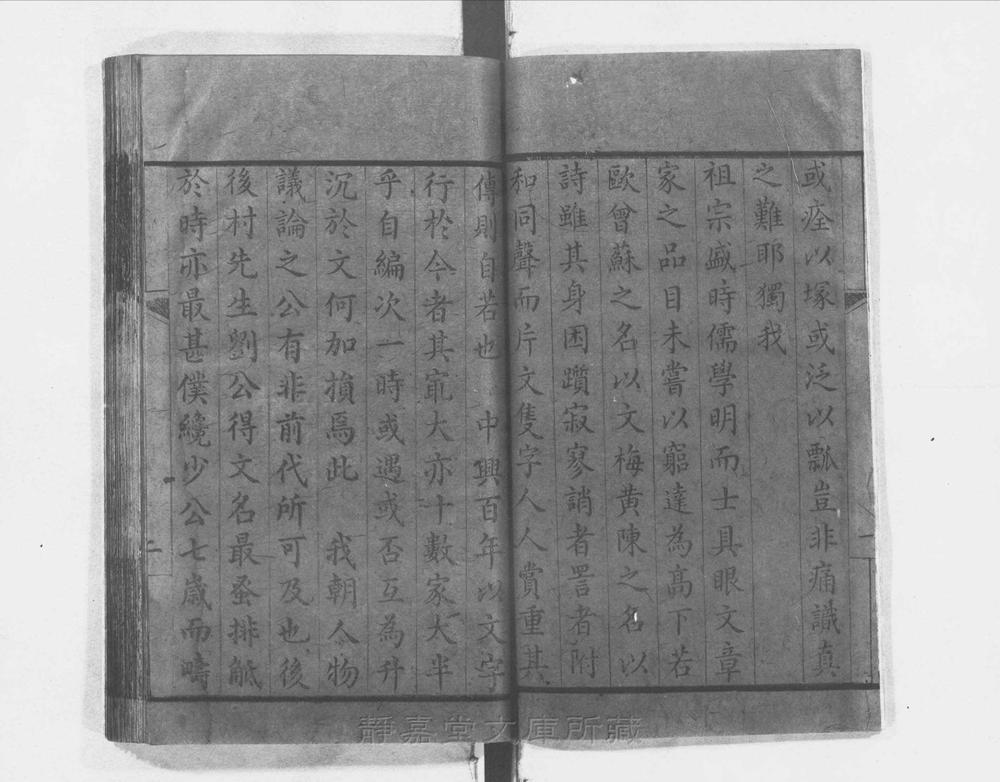 或痊以塚或泛以瓢豈非痛識真
之難耶獨我
祖宗盛時儒學明而士具眼文章
家之品目未嘗以窮達為高下若
歐曾蘇之名以文梅黄陳之名以
詩雖其身困躓寂寥誚者詈者附
和同聲而片文隻字人人賞重其
傳則自若也 中興百年以文字
行於今者其冣大亦十數家大半
乎自編次一時或遇或否互為升
沉於文何加損焉此 我朝人物
議論之公有非前代所可及也後
後村先生劉公得文名最蚤排觝
於時亦最甚僕纔少公七歲而疇
一
二
靜嘉堂文庫所藏